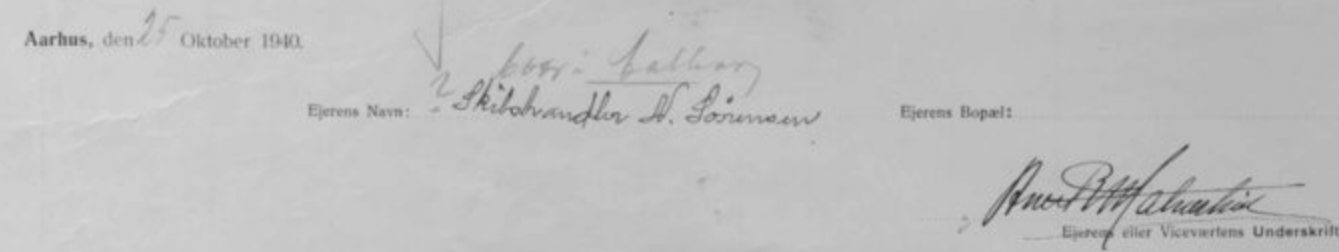 Aarhus, den 25 Oktober 1940.
bor i Aalborg
Ejerens Navn: ? Skibshandler N. Sørensen Ejerens Bopæl:
Ejerens eller Viceværtens Underskrift